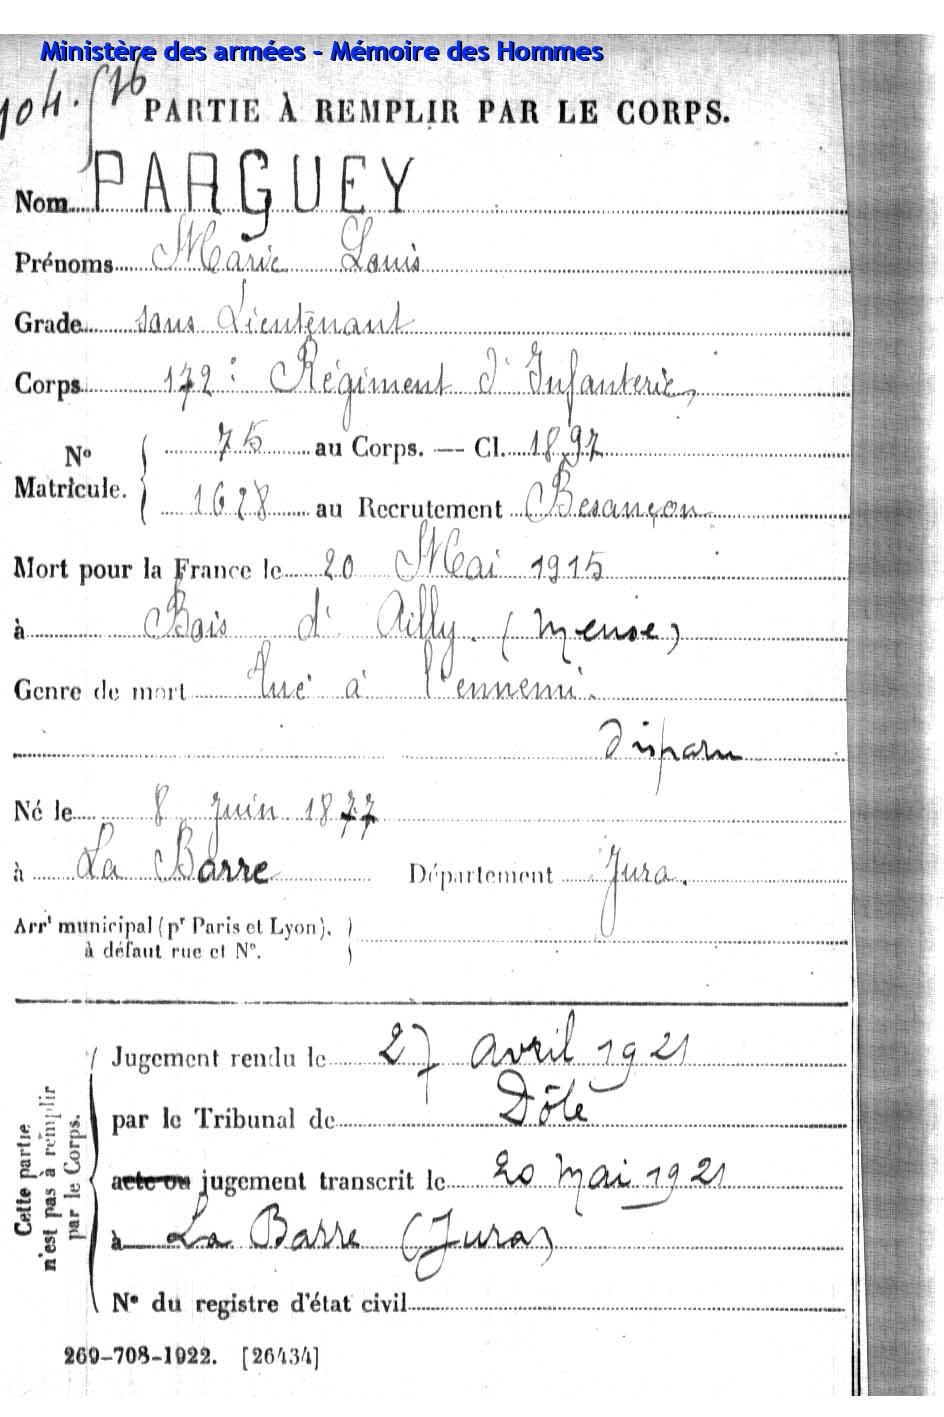 Ministère des armées - Mémoire des Hommes
104.576
PARTIE À REMPLIR PAR LE CORPS.
Nom PARGUEY
Prénoms Marie Louis
Grade sous Lieutenant
Corps 172e Régiment d'Infanterie
No Matricule. 75 au Corps. — Cl. 1897
1628 au Recrutement Besançon
Mort pour la France le 20 Mai 1915
à Bois d'Ailly. (Meuse)
Genre de mort Tué à l'ennemi.
Disparu
Né le 8 juin 1877
à La Barre Département Jura.
Arrt municipal (pr Paris et Lyon),
à défaut rue et No.
Cette partie n'est pas à remplir par le Corps.
Jugement rendu le 27 avril 1921
par le Tribunal de Dôle
acte ou jugement transcrit le 20 mai 1921
à La Barre (Jura)
No du registre d'état civil
269-708-1922. [26434]